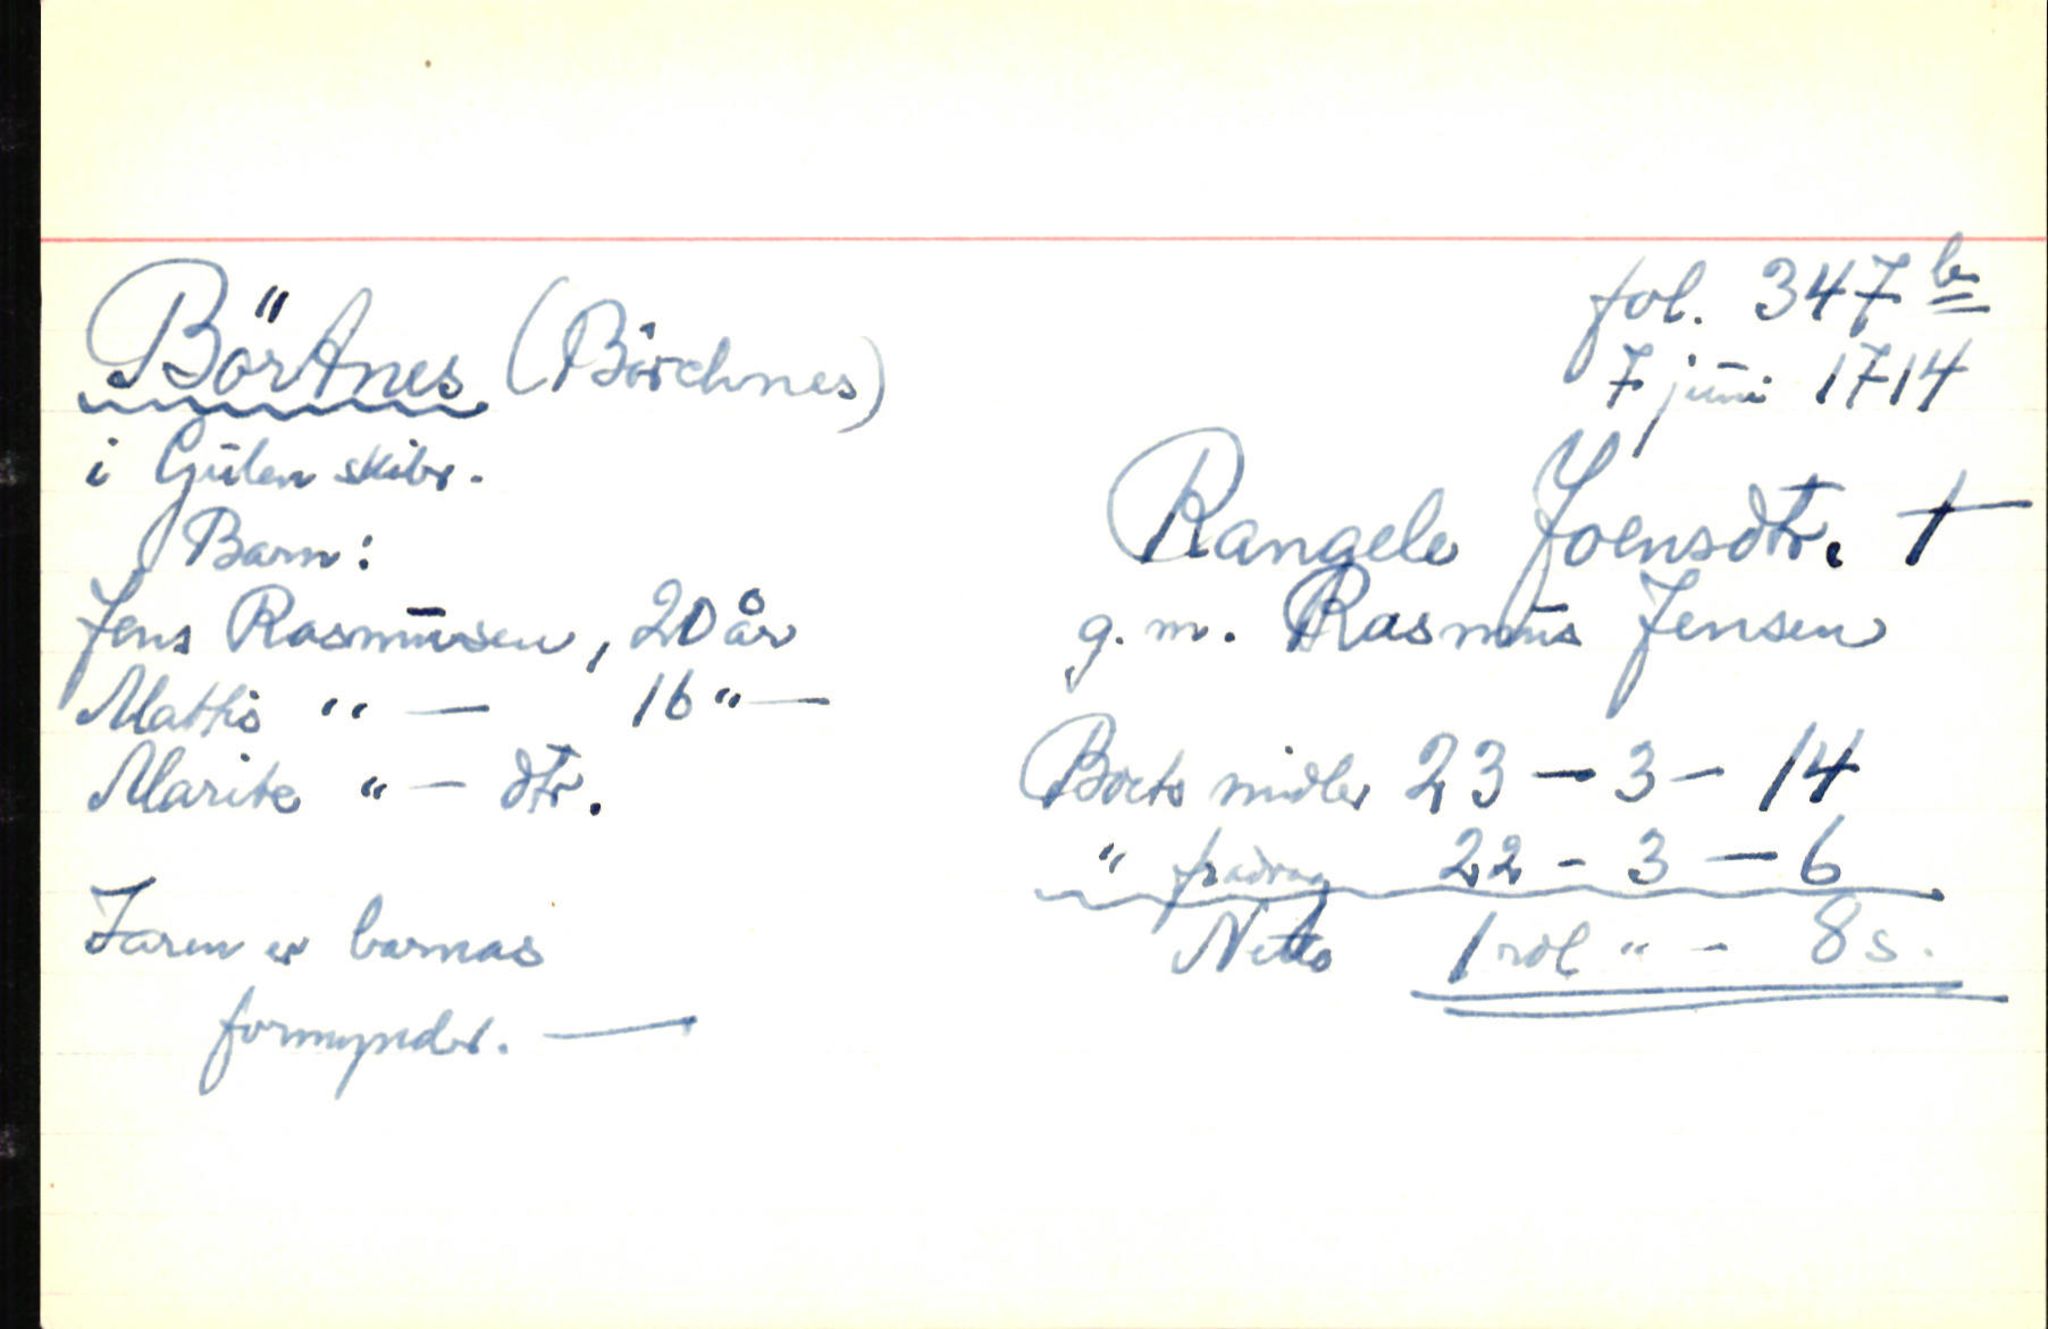 fol. 347 b
7 juni 1714
Børtnes (Børchnes)
i Gulen skibr.
Barn:
Jens Rasmusen, 20 år
Mattis " — 16 " —
Marite " — dtr.
Faren er barnas
formynder. —
Rangele Joensdtr. †
g. m. Rasmus Jensen
Boets midler 23 — 3 — 14
" fradrag 22 - 3 — 6
Netto 1 rdl " - 8 s.